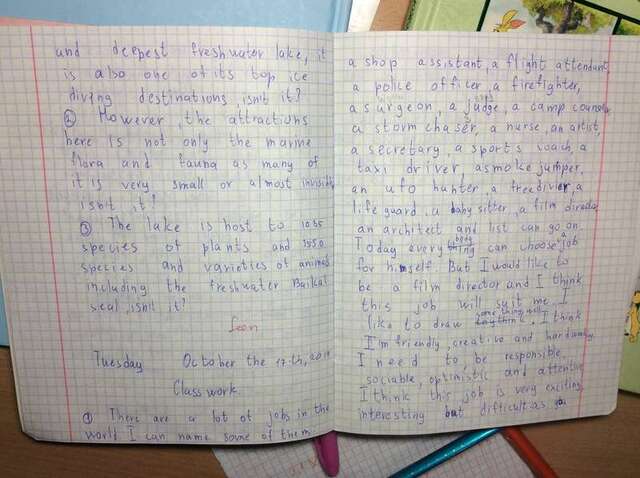 and deepest freshwater lake, it
is also one of its top ice
diving destinations, isn't it?
② However, the attractions
here is not only the marine
flora and fauna as many of
it is very small or almost invisible
isn't it?
③ The lake is host to 1035
species of plants and 1550
species and varieties of animals
including the freshwater Baikal
seal, isn't it?
Seen
Tuesday October the 17-th,
Classwork.
① There are a lot of jobs in the
world I can name some of them.
a shop assistant, a flight attendant,
a police officer, a firefighter,
a surgeon, a judge, a camp counselor
a storm chaser, a nurse, an artist,
a secretary, a sports coach, a
taxi driver, a smoke jumper,
an ufo hunter, a freediver, a
life guard, a baby sitter, a film director
an architect and list can go on.
Today every body can choose a job
for himself. But I would like to
be a film director and I think
this job will suit me. I
like to draw something well. I think
I'm friendly, creative and hardworking
I need to be responsible,
sociable, optimistic and attentive
I think this job is very exciting,
interesting but difficult as